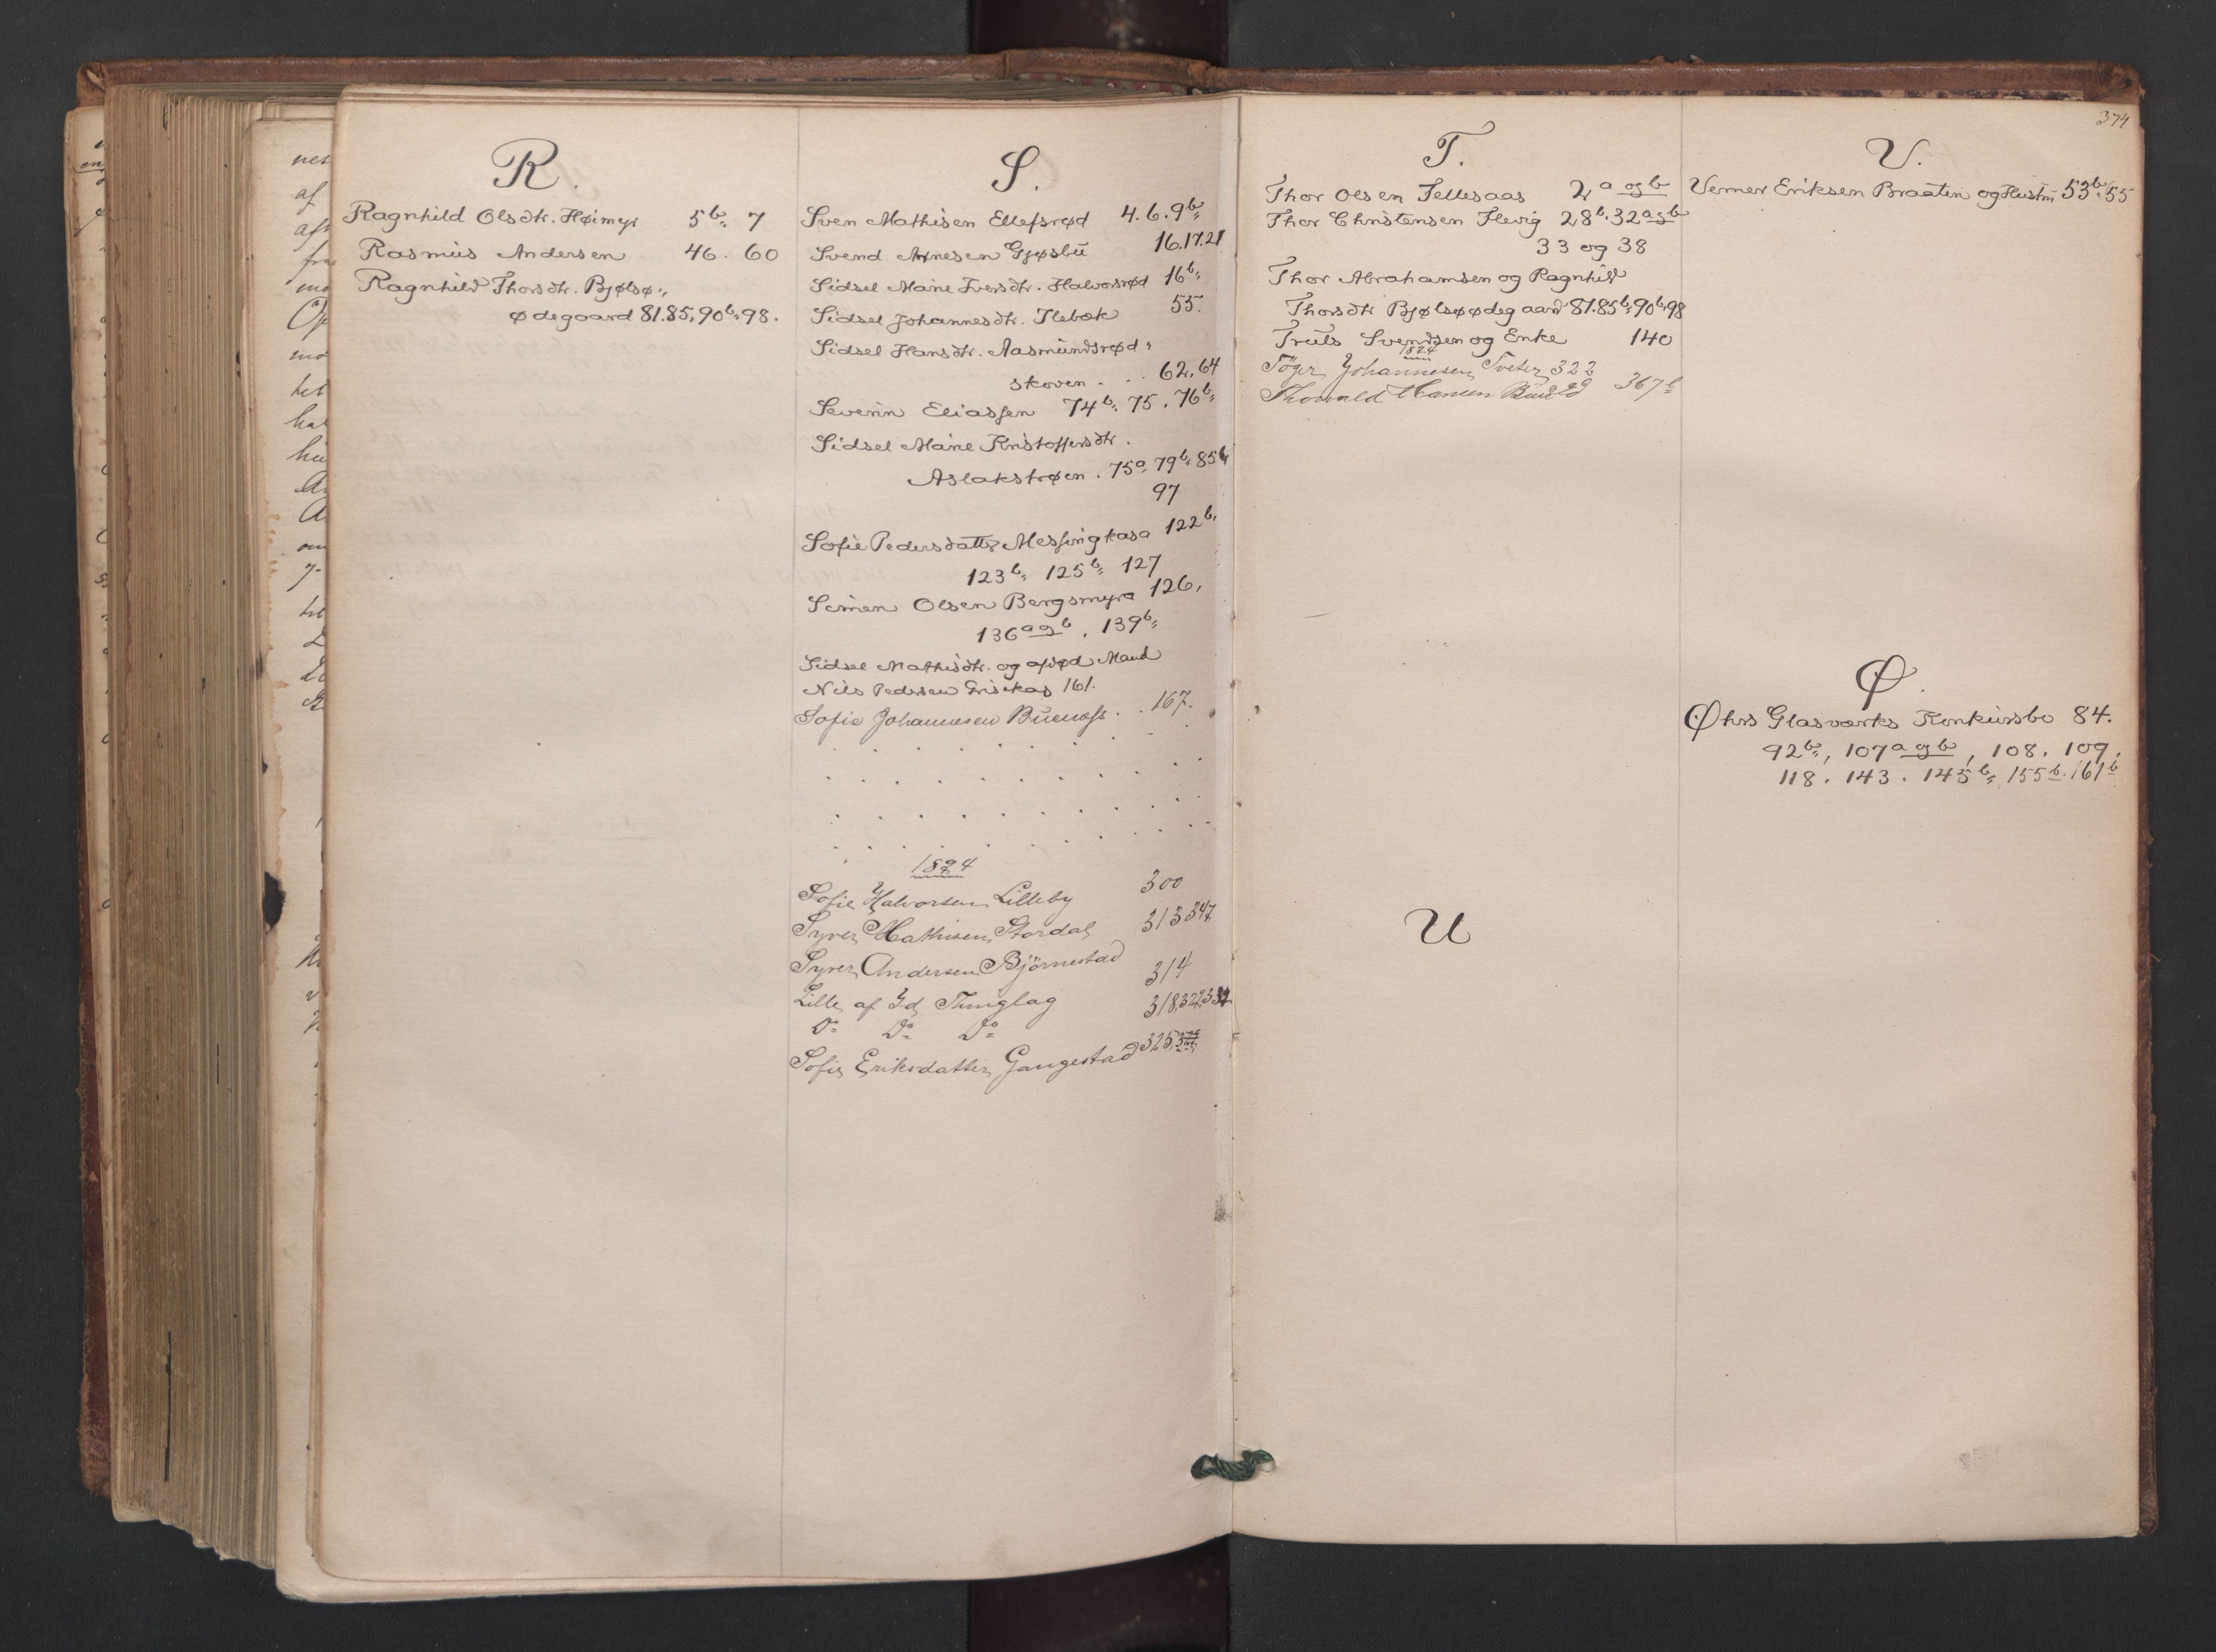 R.
Ragnhild Olsdtr. Høimyr 5b„ 7
Rasmus Andersen 46. 60
Ragnhild Thorsdtr. Bjølsø„
ødegaard 81.85.90b„ 98.
S.
Sven Mathisen Ellefsrød 4.6.9b„
Svend Arnesen Gjøsbu 16.17.21
Sidsel Marie Iversdtr. Halvorsrød 16b„
Sidsel Johannesdtr. Ilebæk 55.
Sidsel Hansdtr. Aasmundsrød„
skoven . . . 62.64
Severin Eliassen 74b„ 75. 76b„
Sidsel Marie Kristoffersdtr.
Aslakstrøen . 75a. 79b„ 85b„
97
Sofie Pedersdatter Messingkasa 122b„
123b„ 125b„ 127
Simen Olsen Bergsmyra 126,
136a og b. 139b„
Sidsel Mathisdtr. og afdød Mand
Nils Pedersen Grisekas 161.
Sofie Johannesen Buenæss . . 167.
1894
Sofie Halvorsen Lilleby 300
Syver Mathisen Stordal 313 347
Syver Andersen Björnestad 314
Lille af Id Thinglag 318,322,332
Do Do Do
Sofie Eriksdatter Gangestad 325
T.
Thor Olsen Tellesaas 2a og b
Thor Christensen Flevig 28b. 32a og b
33 og 38
Thor Abrahamsen og Ragnhild
Thorsdtr Bjølsøødegaard 81.85b„ 90b„ 98
Truls Svendsen og Enke 140
1894
Töger Johannesen Tveter 322
Thorvald Hansen 367b
U
374
V.
Verner Eriksen Braaten og Hustru 53b. 55
Ø.
Øhrs Glasværks Konkursbo 84.
92b„, 107a og b, 108. 109.
118. 143. 145b„ 155b. 161b